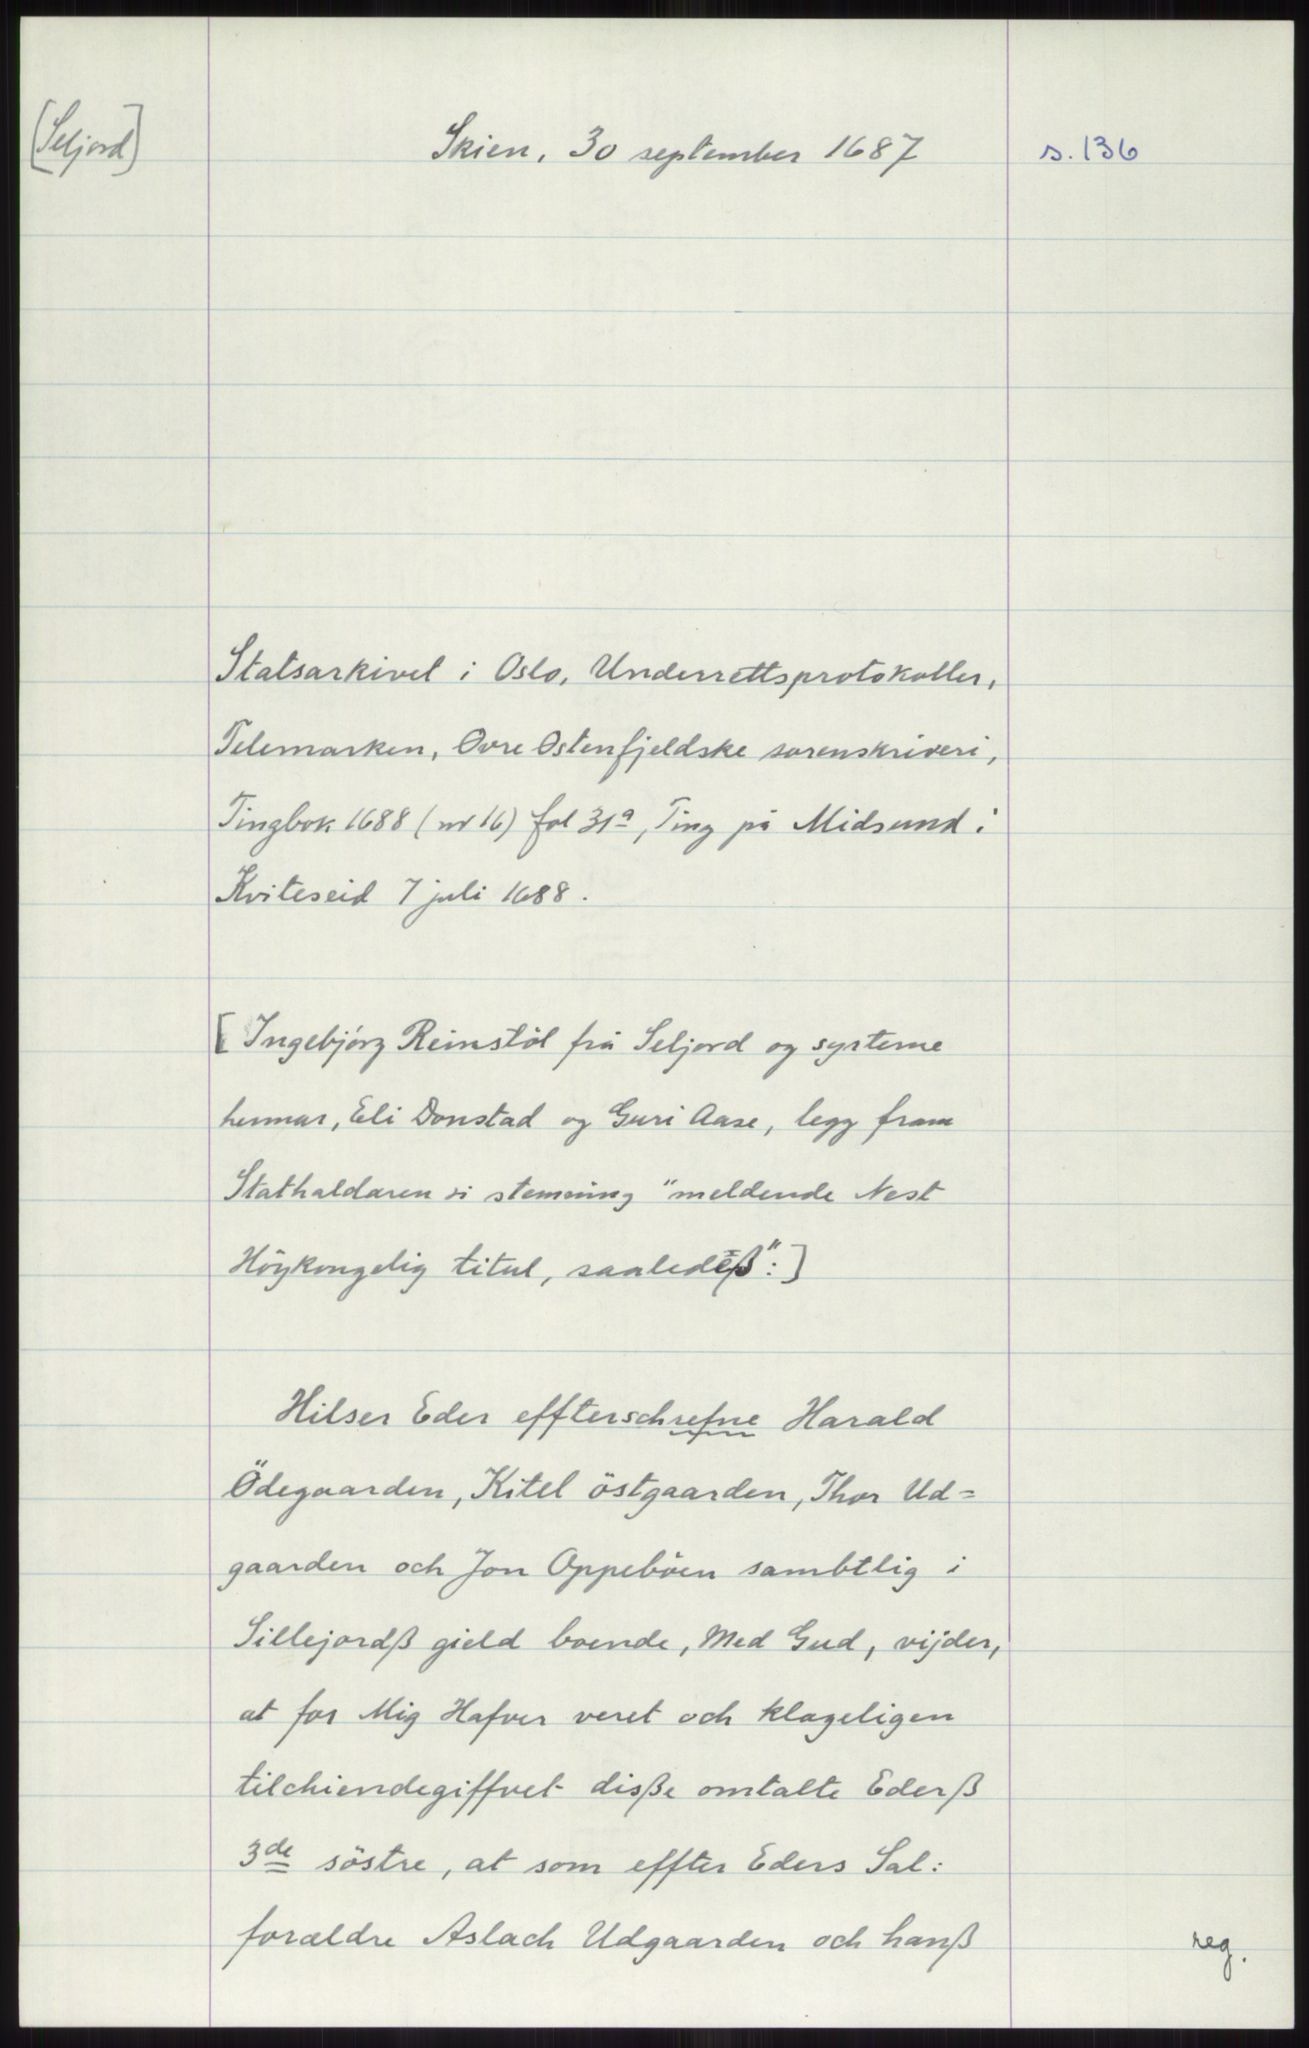 [Seljord]
Skien, 30 september 1687
s. 136
Statsarkivet i Oslo, Underrettsprotokoller,
Telemarken, Ovre Ostenfjeldske sorenskriveri,
Tingbok 1688 (nr 16) fol 31a, Ting på Midsund i
Kviteseid 7 juli 1688.
[Ingebjörg Reinstöl frå Seljord og systerne
hennar, Eli Donstad og Guri Aase, legg fram
Stathaldaren si stemning "meldende Nest
Höykongelig titul, saaledeß":]
Hilser Eder effterschrefne Harald
Ödegaarden, Kitel östgaarden, Thor Ud=
gaarden och Jon Oppeböen sambtlig i
Sillejordß gield boende, Med Gud, vijder,
at for Mig Hafver veret och klageligen
tilchiendegiffvet disße omtalte Ederß
3de söstre, at som effter Eders Sal:
forældre Aslach Udgaarden och hanß
reg.